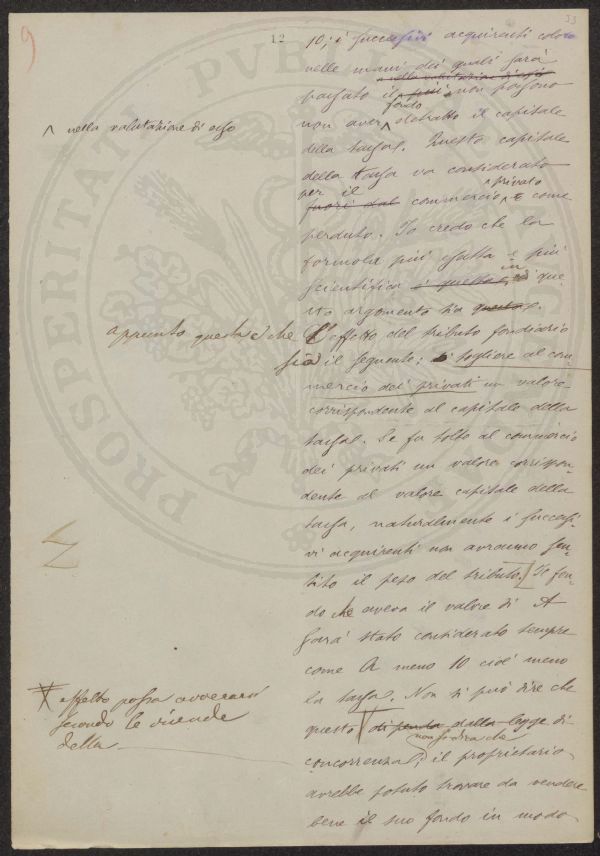 9
12
33
10; i successivi acquirenti coloro
nelle mani dei quali sarà
nella valutazione di esso
passato il più non possono
fondo
non aver detratto il capitale
nella valutazione di esso
della tassa. Questo capitale
della tassa va considerato
per il privato
fuori dal commercio e come
perduto. Io credo che la
formola più esatta e più
scientifica è questa in que
sto argomento sia questa.
appunto questa è che
L'effetto del tributo fondiario
sia il seguente: di togliere al com
mercio dei privati un valore
corrispondente al capitale della
tassa. Se fu tolto al commercio
dei privati un valore corrispon
dente al valore capitale della
tassa, naturalmente i successi
vi acquirenti non avranno sen
tito il peso del tributo. Il fon
do che aveva il valore di A
sarà stato considerato sempre
come A meno 10 cioè meno
la tassa. Non si può dire che
effetto possa avverarsi
secondo le vicende
della
questo dipenda dalla legge di
non si dica che
concorrenza; il proprietario
avrebbe potuto trovare da vendere
bene il suo fondo in modo
PROSPERITAT PVB